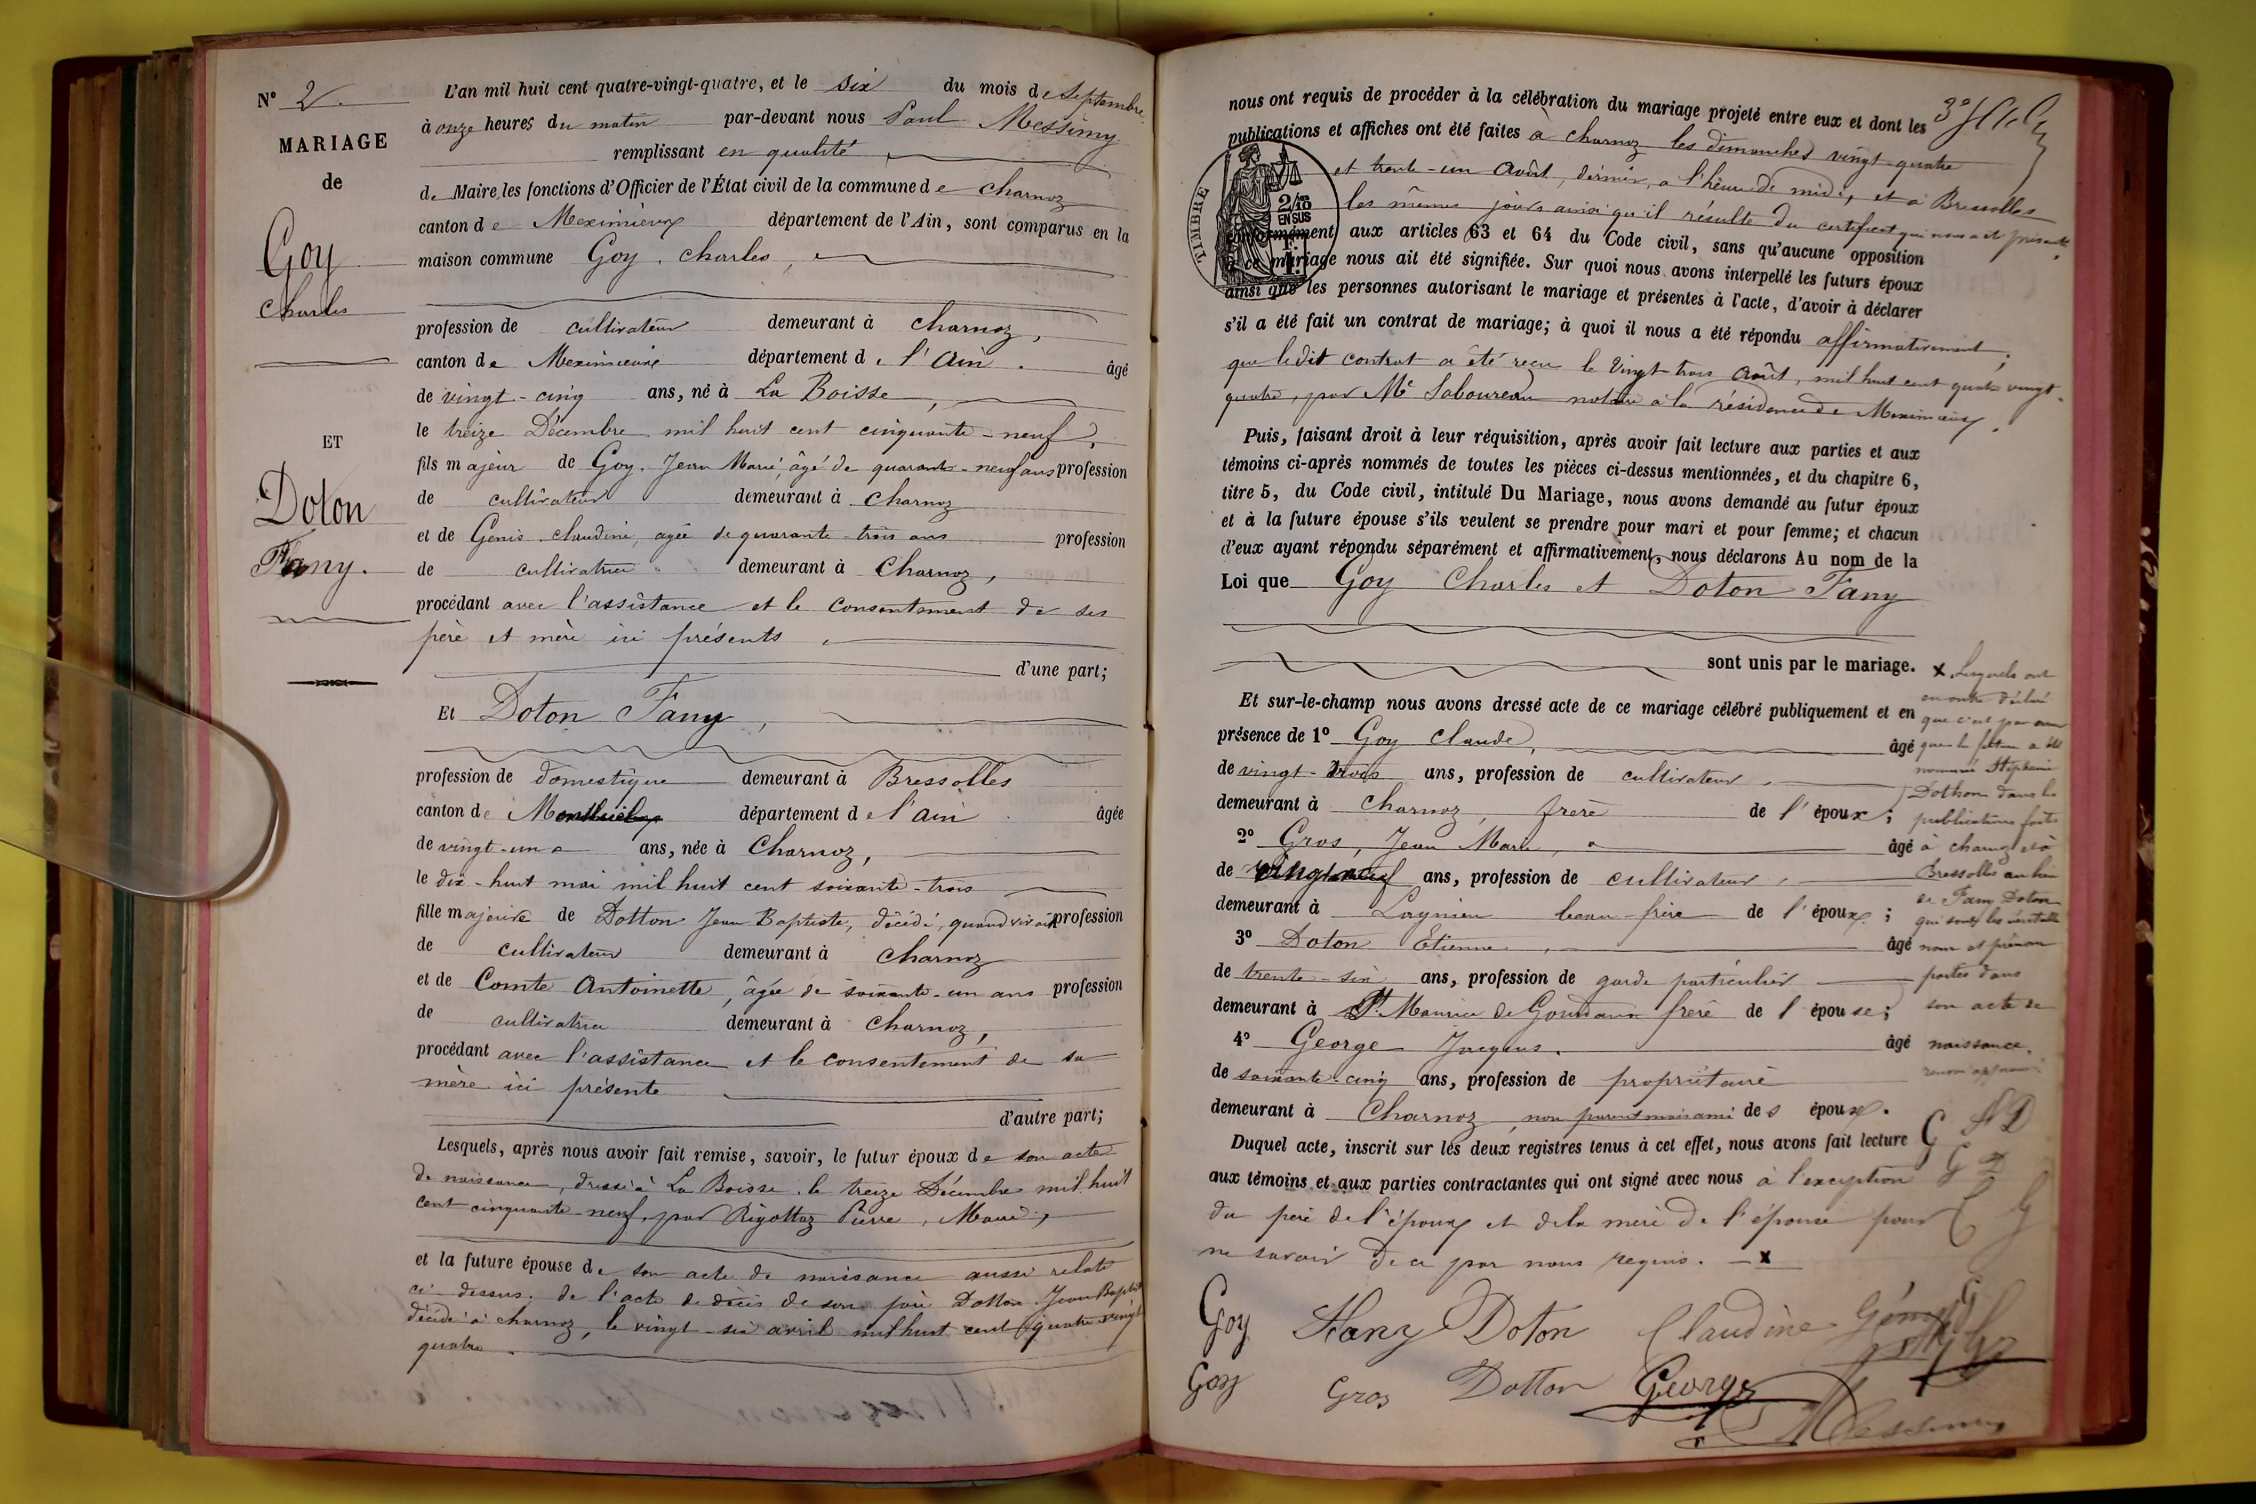 N° 2
MARIAGE
de
Goy
Charles
ET
Doton
Fany.
L'an mil huit cent quatre-vingt-quatre, et le six du mois de Septembre
à onze heures du matin par-devant nous Paul Messimy
remplissant en qualité
de Maire les fonctions d'Officier de l'État civil de la commune de Charnoz
canton de Meximieux département de l'Ain, sont comparus en la
maison commune Goy Charles,
profession de cultivateur demeurant à Charnoz,
canton de Meximieux département de l'Ain. âgé
de vingt-cinq ans, né à La Boisse,
le treize Décembre mil huit cent cinquante-neuf,
fils majeur de Goy Jean Marie, âgé de quarante-neuf ans profession
de cultivateur demeurant à Charnoz
et de Genis Claudine, agée de quarante-trois ans profession
de cultivatrice demeurant à Charnoz,
procédant avec l'assistance et le consentement de ses
père et mère ici présents
d'une part;
Et Doton Fany,
profession de domestique demeurant à Bressolles
canton de Montluel département de l'Ain âgée
de vingt-un ans, née à Charnoz,
le dix-huit mai mil huit cent soixante-trois
fille majeure de Dotton Jean Baptiste, décédé, quand vivait profession
de cultivateur demeurant à Charnoz
et de Comte Antoinette, âgée de soixante-un ans profession
de cultivatrice demeurant à Charnoz,
procédant avec l'assistance et le consentement de sa
mère ici présente
d'autre part;
Lesquels, après nous avoir fait remise, savoir, le futur époux de son acte
de naissance, dressé à La Boisse le treize Décembre mil huit
cent cinquante-neuf, par Rigottaz Pierre, Maire,
et la future épouse de son acte de naissance aussi relaté
ci-dessus, de l'acte de décès de son père Dotton Jean Baptiste
décédé à Charnoz, le vingt-six avril mil huit cent quatre vingt
quatre.
nous ont requis de procéder à la célébration du mariage projeté entre eux et dont les
publications et affiches ont été faites à Charnoz les dimanches vingt-quatre
et trente-un Août, dernier, à l'heure de midi, et à Bressolles
les mêmes jours ainsi qu'il résulte du certificat qui nous a été présenté.
TIMBRE
2/10
EN SUS
conformément aux articles 63 et 64 du Code civil, sans qu'aucune opposition
à ce mariage nous ait été signifiée. Sur quoi nous avons interpellé les futurs époux
ainsi que les personnes autorisant le mariage et présentes à l'acte, d'avoir à déclarer
s'il a été fait un contrat de mariage; à quoi il nous a été répondu affirmativement;
que ledit contrat a été reçu le vingt-trois Août, mil huit cent quatre vingt
quatre, par Me Saboureau notaire à la résidence de Meximieux.
Puis, faisant droit à leur réquisition, après avoir fait lecture aux parties et aux
témoins ci-après nommés de toutes les pièces ci-dessus mentionnées, et du chapitre 6,
titre 5, du Code civil, intitulé Du Mariage, nous avons demandé au futur époux
et à la future épouse s'ils veulent se prendre pour mari et pour femme; et chacun
d'eux ayant répondu séparément et affirmativement, nous déclarons Au nom de la
Loi que Goy Charles et Doton Fany
sont unis par le mariage.
Et sur-le-champ nous avons dressé acte de ce mariage célébré publiquement et en
présence de 1° Goy Claude, âgé
de vingt-trois ans, profession de cultivateur,
demeurant à Charnoz, frère de l'époux;
2° Gros, Jean Marie, âgé
de vingt-neuf ans, profession de cultivateur,
demeurant à Loynieu beau-frère de l'époux;
3° Doton Etienne, âgé
de trente-six ans, profession de garde particulier
demeurant à St. Maurice de Gourdans frère de l'épouse;
4° George Jacques. âgé
de soixante-cinq ans, profession de propriétaire
demeurant à Charnoz, non parent mais ami des époux.
Duquel acte, inscrit sur les deux registres tenus à cet effet, nous avons fait lecture
aux témoins et aux parties contractantes qui ont signé avec nous à l'exception
du père de l'époux et de la mère de l'épouse pour
ne savoir de ce par nous requis. x
x Lesquels ont
en outre déclaré
que c'est par erreur
que la future a été
nommée Stéphanie
Dothon dans les
publications faites
à Charnoz et à
Bressolles au lieu
de Fany Doton
qui sont les véritables
nom et prénom
portés dans
son acte de
naissance.
G
Goy Fany Doton Claudine
Goy Gros Dotton George
Messimy